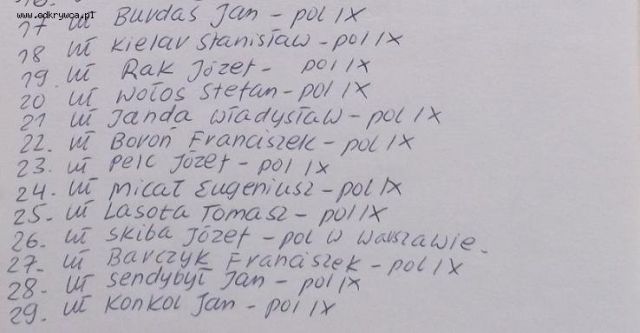 www.odkrywca.pl
17 uł Burdaś Jan - pol IX
18 uł Kielar Stanisław - pol IX
19. uł Rak Józef - pol IX
20 uł Wołos Stefan - pol IX
21 uł Janda Władysław - pol IX
22. uł Boroń Franciszek - pol IX
23. uł Pelc Józef - pol IX
24. uł Micał Eugeniusz - pol IX
25. uł Lasota Tomasz - pol IX
26. uł Skiba Józef - pol w Warszawie.
27. uł Barczyk Franciszek - pol IX
28. uł Sendybył Jan - pol IX
29. uł Konkol Jan - pol IX